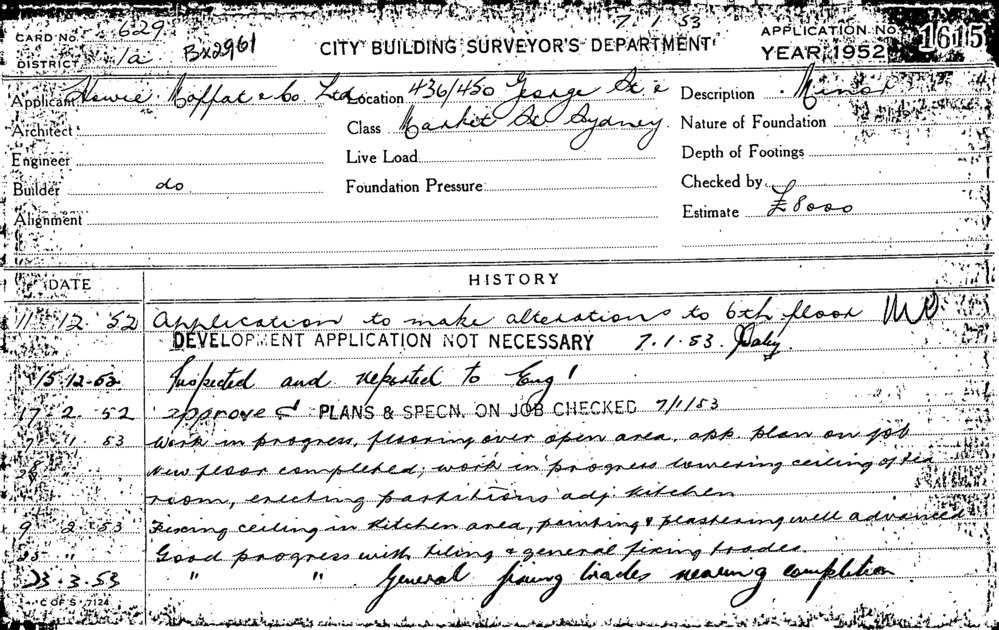 7.1.53
CARD No. 629
DISTRICT 1a
Bx2961
CITY BUILDING SURVEYOR'S DEPARTMENT
APPLICATION No. 1615
YEAR 1952
Applicant Howie Moffat & Co Ltd
Location 436/450 George St &
Description Minor
Architect
Class Market St Sydney
Nature of Foundation
Engineer
Live Load
Depth of Footings
Builder do
Foundation Pressure
Checked by
Alignment
Estimate £8000
DATE
HISTORY
11 12 52 Application to make alterations to 6th floor
DEVELOPMENT APPLICATION NOT NECESSARY 7.1.53.
15.12.52 Inspected and reported to Eng'
17 2 52 approved PLANS & SPECN. ON JOB CHECKED 7/1/53
7 1 53 Work in progress, flooring over open area, app. plan on job
28 " New floor completed; work in progress lowering ceiling of tea
room, erecting partitions adj kitchen
9 2 53 Fixing ceiling in kitchen area, painting & plastering well advanced
" Good progress with tiling & general fixing trades.
23.3.53 " " General fixing trades nearing completion
C OF S 7124